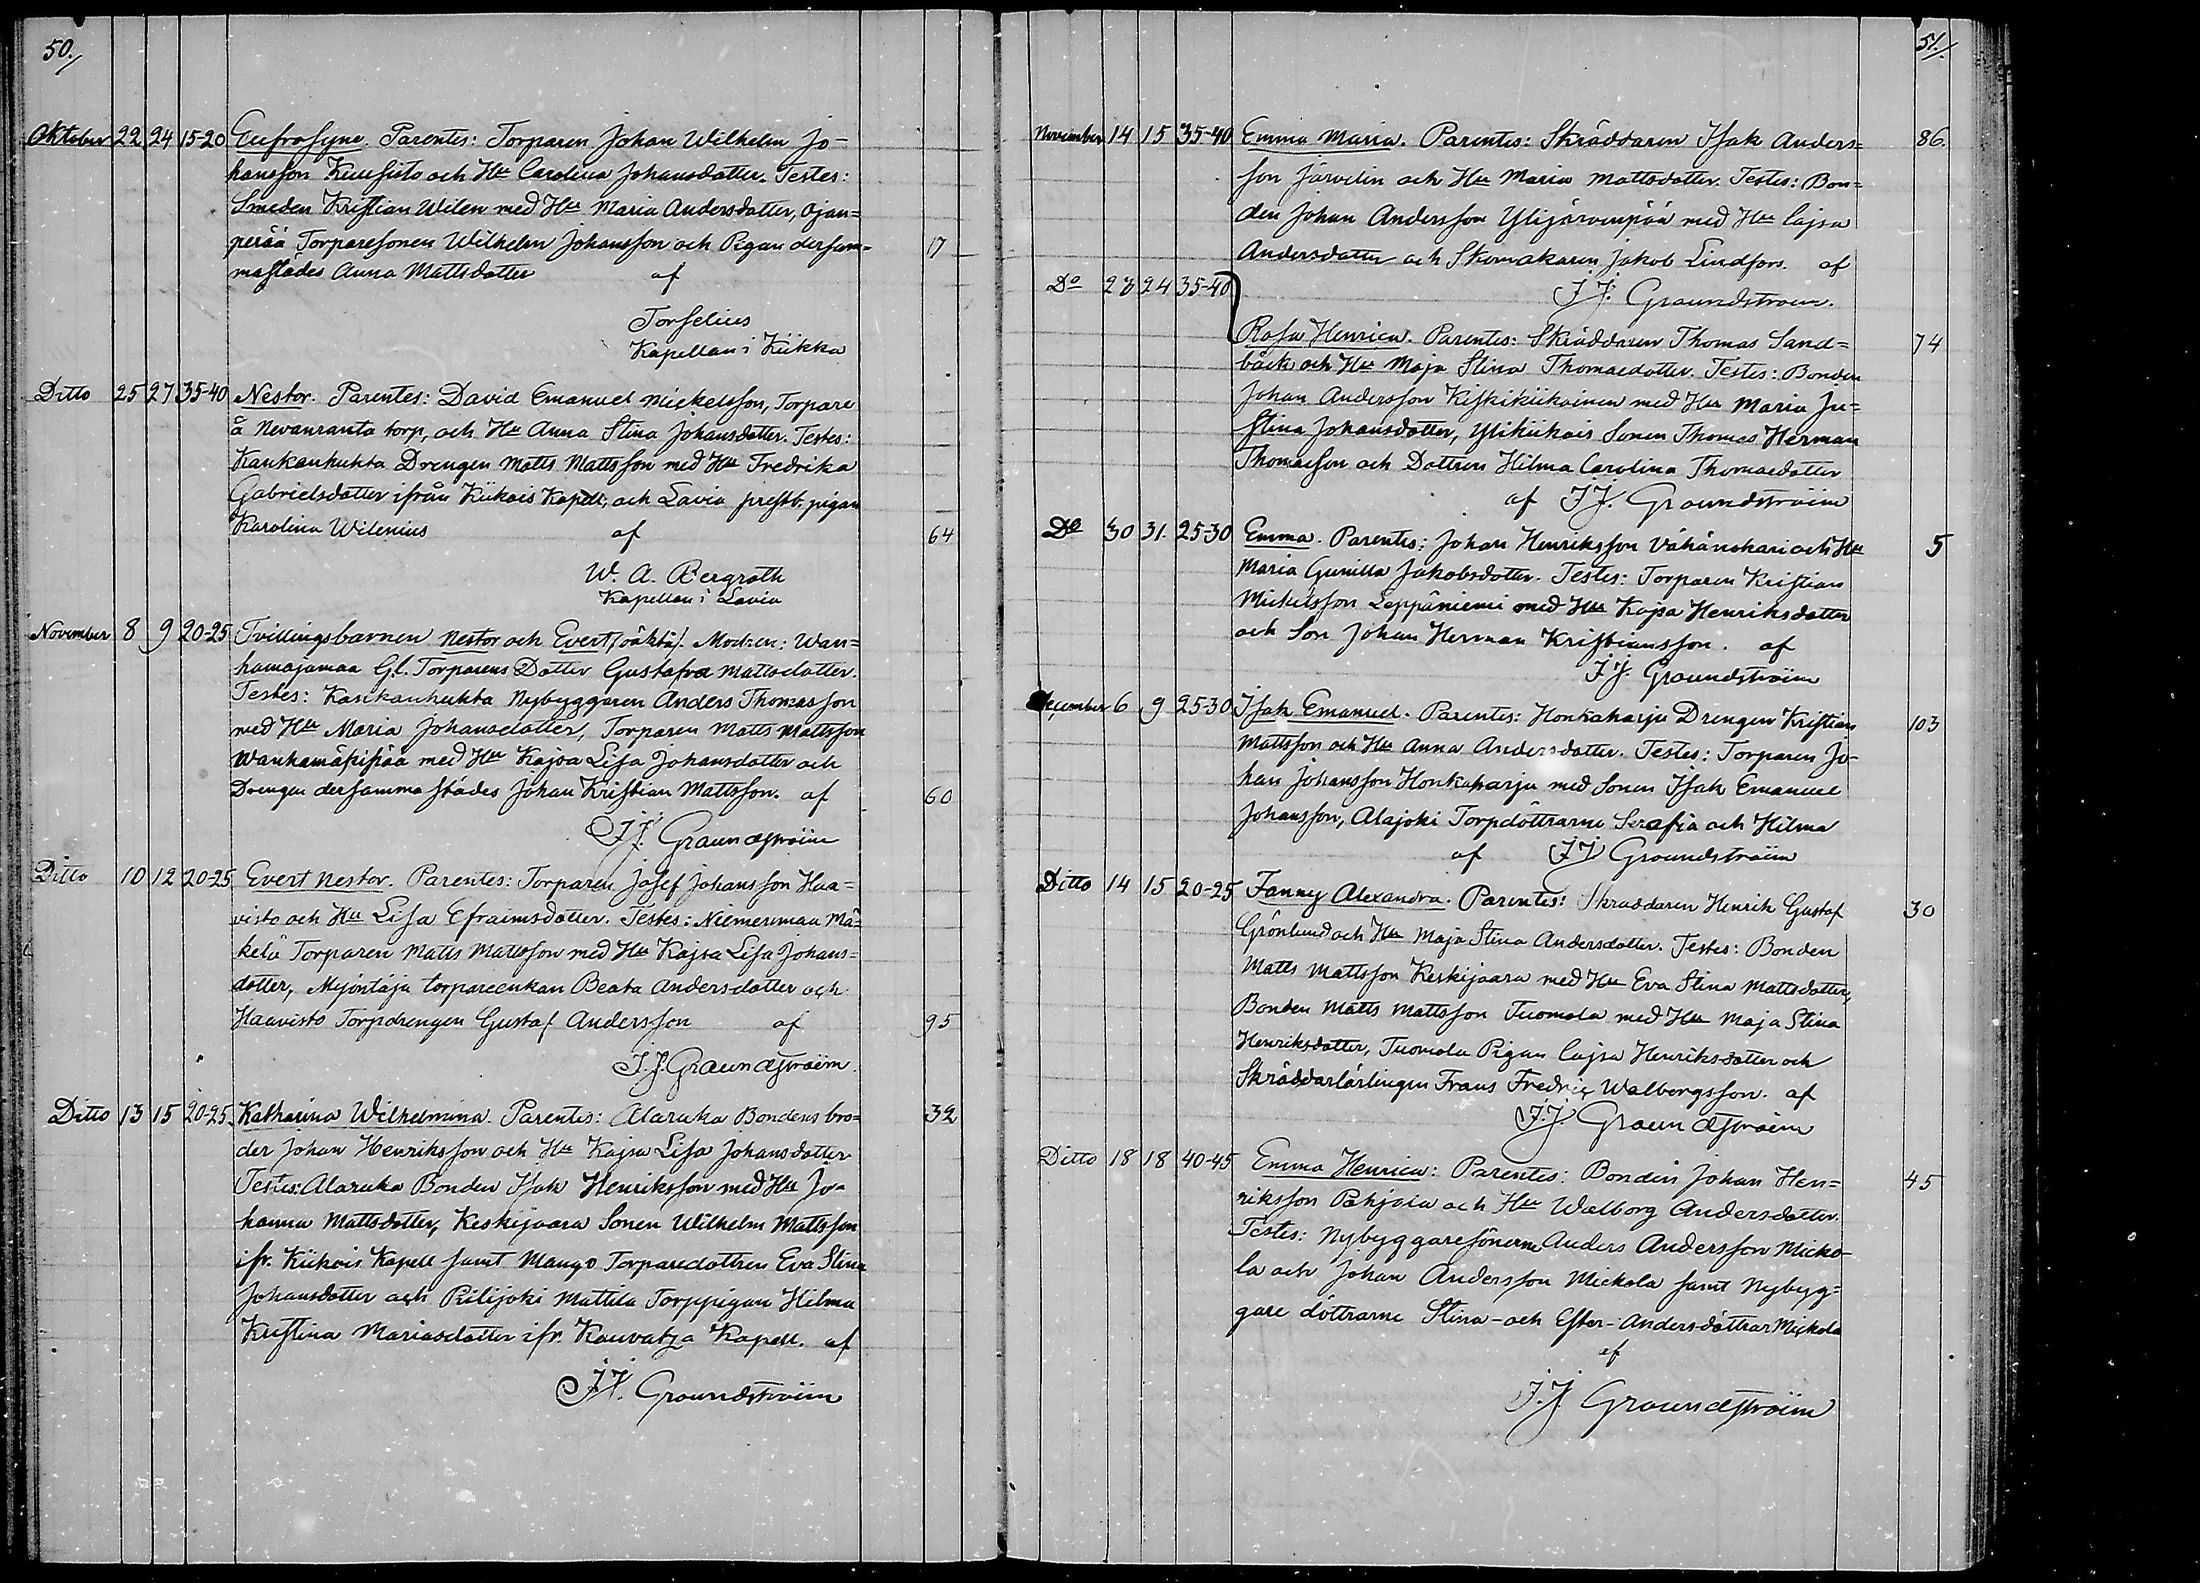 50./
Oktober 22 24 15-20 Eufrosyne. Parentes: Torparen Johan Wilhelm Jo-
hansson Kuusisto och Hu Carolina Johansdotter. Testes:
Smeden Kristian Wilen med Hu Maria Andersdotter, Ojan=
perää Torparesonen Wilhelm Johansson och Pigan dersam= 17
mastädes Anna Mattsdotter af
Torselius
Kapellan i Kiikka
Ditto 25 27 35-40 Nestor. Parentes: David Emanuel Mickelsson, Torpare
å Nevanranta torp, och Hu Anna Stina Johansdotter. Testes:
Kankanhuhta Drengen Matts Mattsson med Hu Fredrika
Gabrielsdotter ifrån Kiikois Kapell, och Lavia prestb. pigan
Karolina Wilenius af 64
W. A. Bergroth
Kapellan i Lavia
November 8 9 20-25 Tvillingsbarnen Nestor och Evert /:oäkta:/. Modren: Wan=
hamajamaa Gl. Torparens Dotter Gustafva Mattsdotter.
Testes: Kankanhuhta Nybyggaren Anders Thomasson
med Hu Maria Johansdotter, Torparen Matts Mattsson
Wanhamäpipää med Hu Kajsa Lisa Johansdotter och
Drengen dersammastädes Johan Kristian Mattsson. af 60
J J. Groundström
Ditto 10 12 20-25 Evert Nestor. Parentes: Torparen Josef Johansson Haa=
visto och Hu Lisa Efraimsdotter. Testes: Niemenmaa Mä=
kelä Torparen Matts Mattsson med Hu Kajsa Lisa Johans=
dotter, Myöntäjä torpareenkan Beata Andersdotter och
Haavisto Torpdrengen Gustaf Andersson af 95
J. J. Groundström.
Ditto 13 15 20-25. Katharina Wilhelmina. Parentes: Alaruka Bondens bro= 32
der Johan Henriksson och Hu Kajsa Lisa Johansdotter
Testes: Alaruka Bonden Isak Henriksson med Hu Jo-
hanna Mattsdotter, Keskijaara Sonen Wilhelm Mattsson
ifr. Kiikois Kapell samt Mango Torparedottren Eva Stina
Johansdotter och Piilijoki Mattila Torppigan Hilma
Kristina Mariasdotter ifr. Kauvatza Kapell. af
J J. Groundström
51./
November 14 15 35-40 Emma Maria. Parentes: Skräddaren Isak Anders= 86.
son Järvelin och Hu Maria Mattsdotter. Testes: Bon=
den Johan Andersson Ylijärvenpää med Hu Cajsa
Andersdotter och Skomakaren Jakob Lindfors. af
Do 23 24 35-40 J J. Groundström.
Rosa Henrica. Parentes: Skräddaren Thomas Sand= 74
bäck och Hu Maja Stina Thomasdotter. Testes: Bonden
Johan Andersson Keskikiikoinen med Hu Maria Ju=
stina Johansdotter, Ylikiikois Sonen Thomas Herman
Thomasson och Dottren Hilma Carolina Thomasdotter
af J J. Groundström
Do 30 31. 25-30 Emma. Parentes: Johan Henriksson Vähänokari och Hu 5
Maria Gunilla Jakobsdotter. Testes: Torparen Kristian
Mickelsson Leppäniemi med Hu Kajsa Henriksdotter
och Son Johan Herman Kristiansson. af
J J. Groundström
December 6 9 25-30 Isak Emanuel. Parentes: Honkaharju Drengen Kristian 103
Mattsson och Hu Anna Andersdotter. Testes: Torparen Jo-
han Johansson Honkaharju med Sonen Isak Emanuel
Johansson, Alajoki Torpdöttrarne Serafia och Hilma
af J J Groundström
Ditto 14 15 20-25 Fanny Alexandra. Parentes: Skräddaren Henrik Gustaf 30
Grönlund och Hu Maja Stina Andersdotter. Testes: Bonden
Matts Mattsson Keskijaara med Hu Eva Stina Mattsdotter,
Bonden Matts Mattsson Tuomola med Hu Maja Stina
Henriksdotter, Tuomola Pigan Cajsa Henriksdotter och
Skräddarlärlingen Frans Fredric Walbergsson. af
J. J. Groundström
Ditto 18 18 40-45 Emma Henrica: Parentes: Bonden Johan Hen= 45
riksson Pohjola och Hu Walborg Andersdotter.
Testes: Nybyggaresönerne Anders Andersson Micko-
la och Johan Andersson Mickola samt Nybyg=
gare döttrarne Stina- och Ester- Andersdöttrar Mickola
af
J. J Groundström